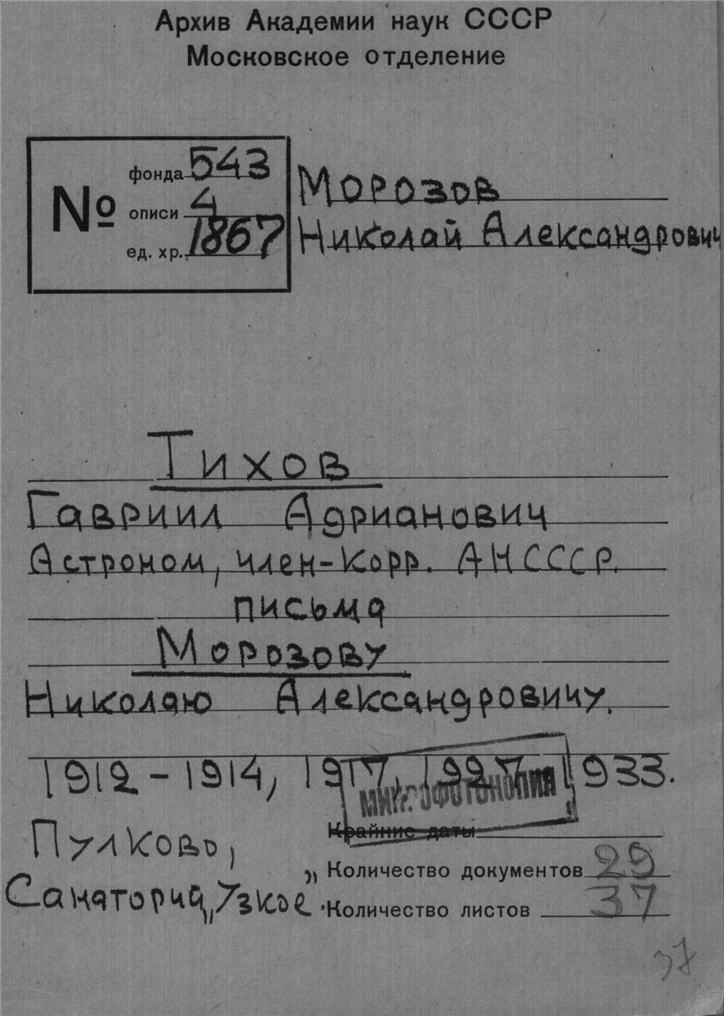 Архив Академии наук СССР
Московское отделение
№
фонда 543
описи 4
ед. хр. 1867
Морозов
Николай Александрович
Тихов
Гавриил Адрианович
Астроном, член-корр. АН СССР.
письма
Морозову
Николаю Александровичу.
1912 - 1914, 1917, 1927, 1933.
МИКРОФОТОКОПИЯ
Крайние даты
Пулково,
Санаторий „Узкое"
„ Количество документов 29
Количество листов 37
37